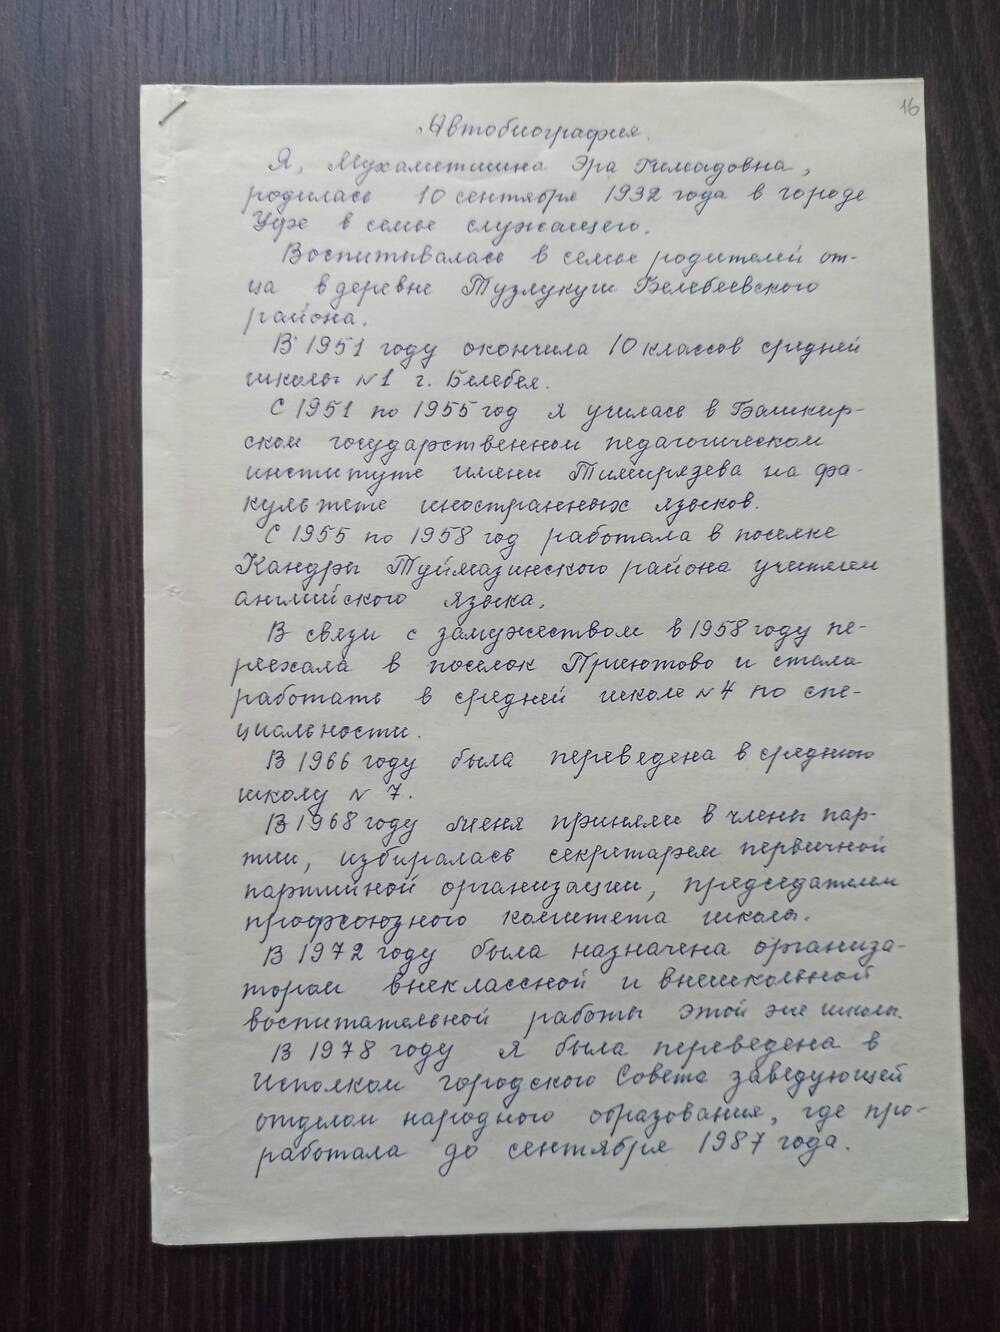 16
Автобиография.
Я, Мухаметшина Эра Гимадовна,
родилась 10 сентября 1932 года в городе
Уфе в семье служащего.
Воспитывалась в семье родителей от-
ца в деревне Тузлукуш Белебеевского
района.
В 1951 году окончила 10 классов средней
школы №1 г. Белебея.
С 1951 по 1955 год я училась в Башкир-
ском государственном педагогическом
институте имени Тимирязева на фа-
культете иностранных языков.
С 1955 по 1958 год работала в поселке
Кандры Туймазинского района учителем
английского языка.
В связи с замужеством в 1958 году пе-
реехала в поселок Приютово и стала
работать в средней школе №4 по спе-
циальности.
В 1966 году была переведена в среднюю
школу № 7.
В 1968 году меня приняли в члены пар-
тии, избиралась секретарем первичной
партийной организации, председателем
профсоюзного комитета школы.
В 1972 году была назначена организа-
тором внеклассной и внешкольной
воспитательной работы этой же школы.
В 1978 году я была переведена в
Исполком городского Совета заведующей
отделом народного образования, где про-
работала до сентября 1987 года.